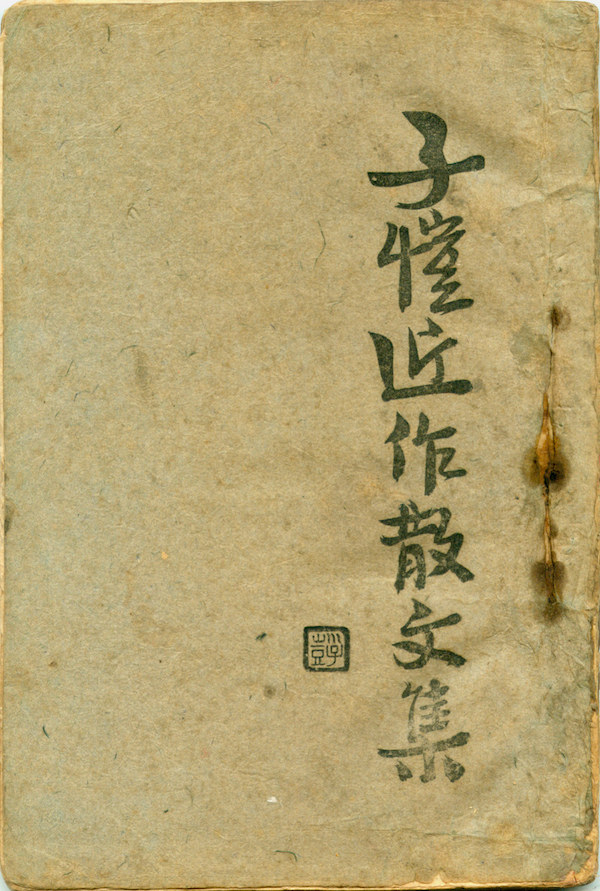 子愷近作散文集